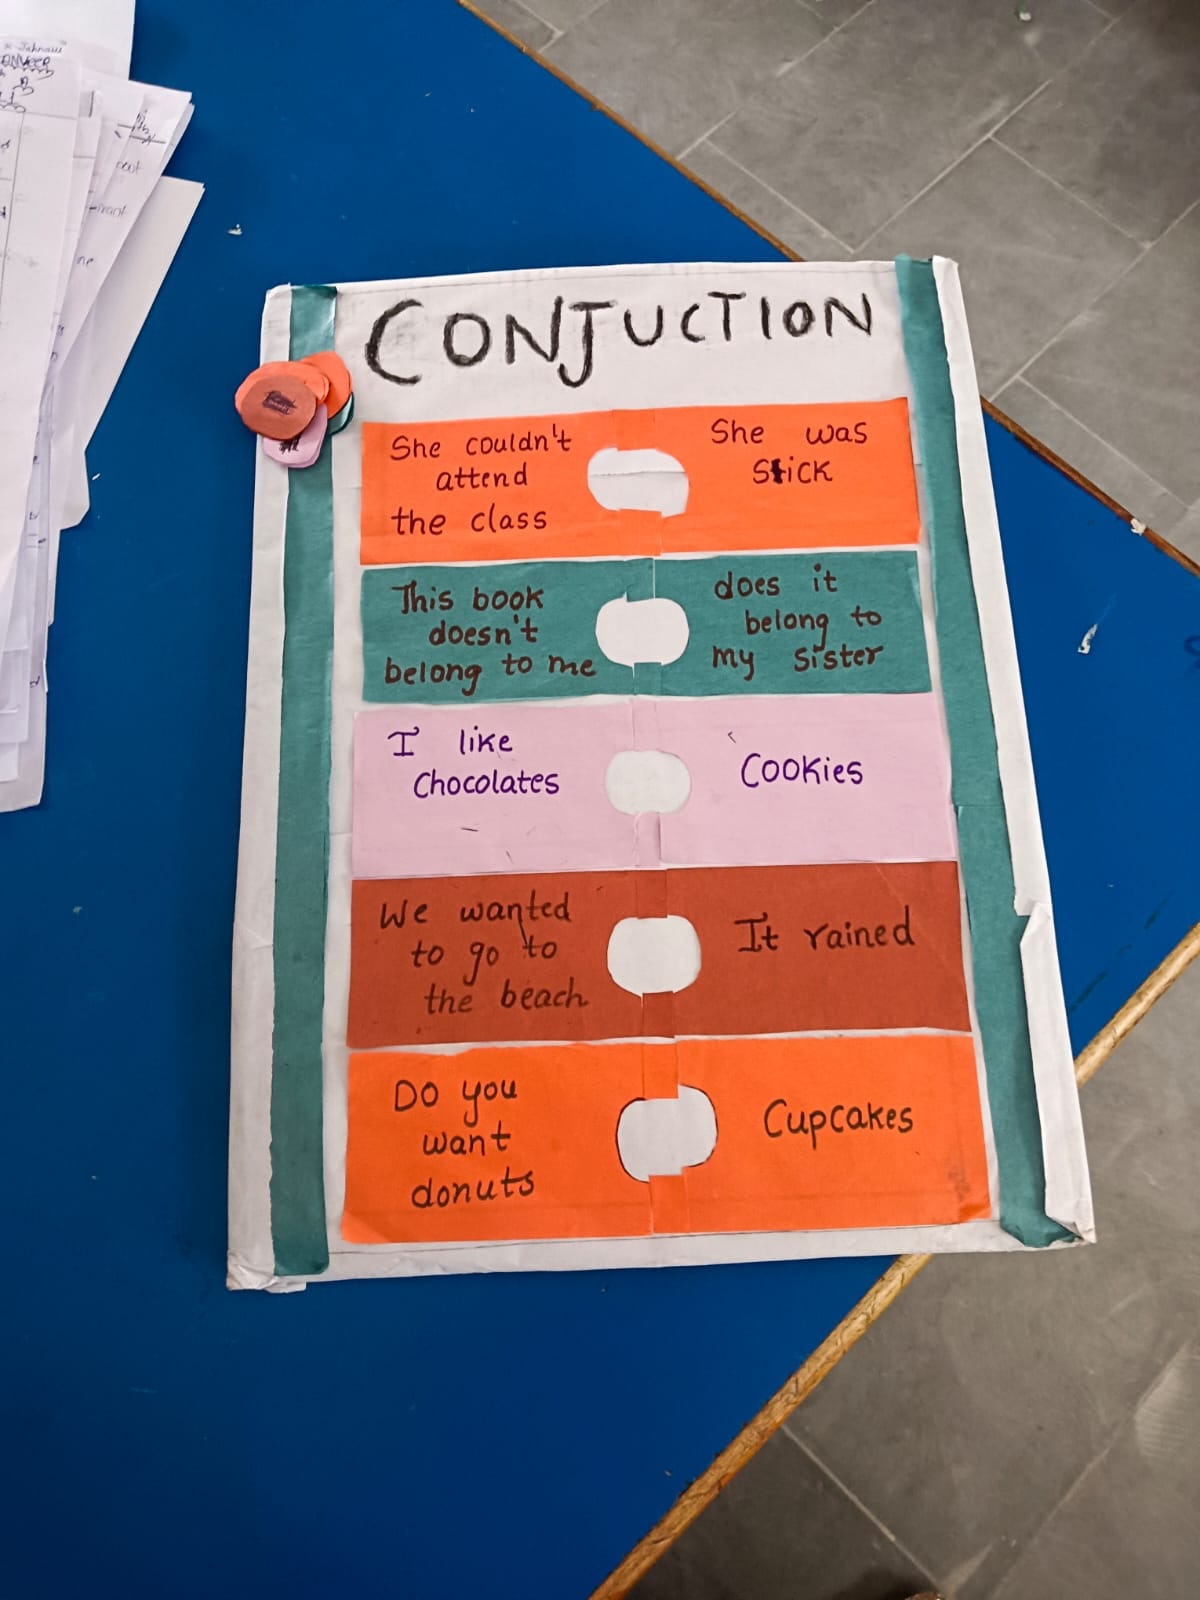 Jahnavi
CONJUCTION
She couldn't
attend
the class
She was
Sick
This book
doesn't
belong to me
does it
belong to
my sister
I like
Chocolates
Cookies
We wanted
to go to
the beach
It rained
Do you
want
donuts
Cupcakes